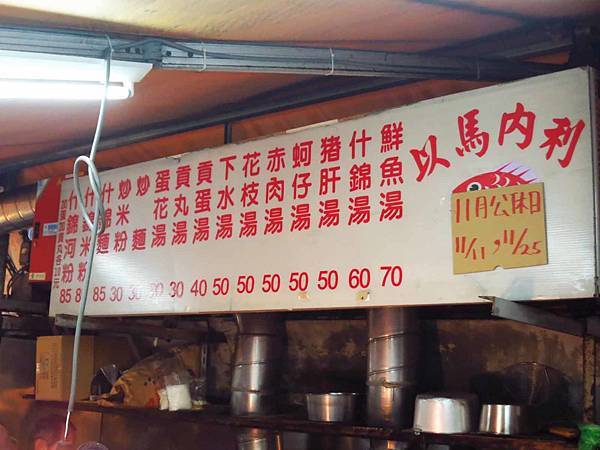 以馬內利
11月公休日
11/11, 11/25
鮮魚湯 70
什錦湯 60
豬肝湯 50
蚵仔湯 50
赤肉湯 50
花枝湯 50
下水湯 50
貢蛋湯 40
貢丸湯 30
蛋花湯
炒麵 30
炒米粉 30
什錦麵 85
什錦米粉
什錦河粉 85
加蛋加貢丸各10元